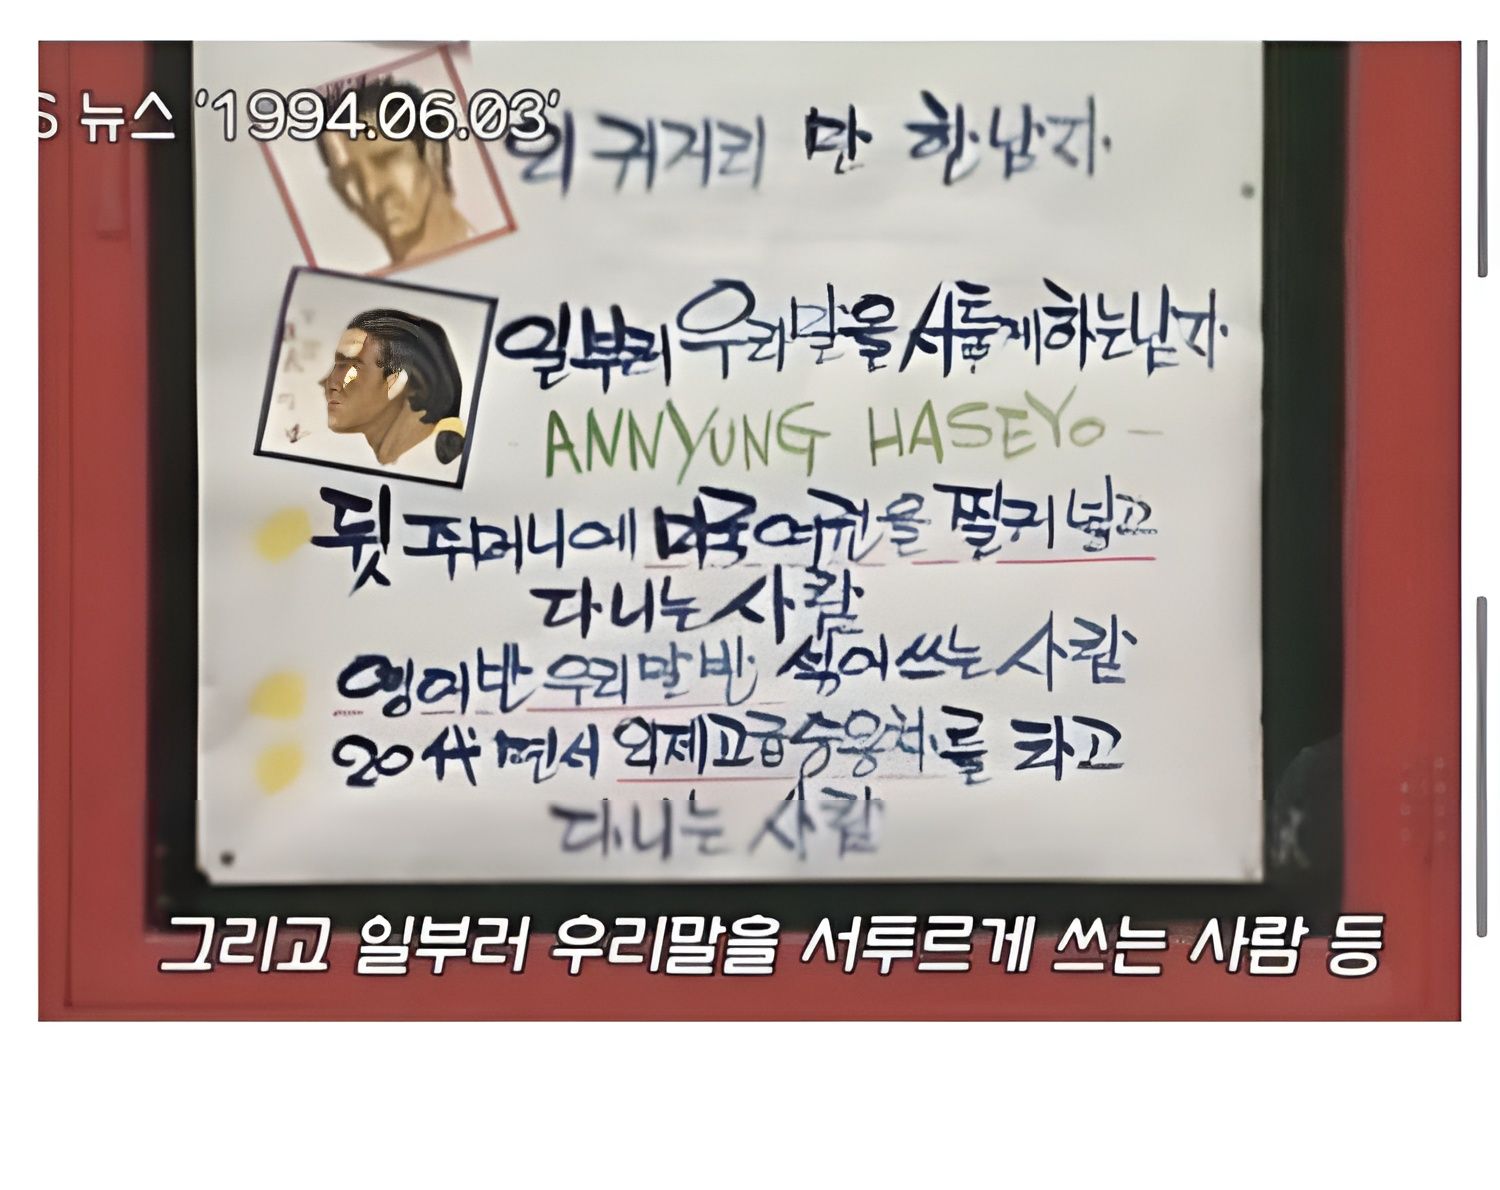 S 뉴스 '1994.06.03'
귀거리 만 한 남자.
일부러 우리말을 서툴게 하는 남자.
ANNYUNG HASEYO –
뒷 주머니에 미국여권을 찔러 넣고
다니는 사람
영어반 우리말반 섞어 쓰는 사람
20代 면서 외제고급승용차를 타고
다니는 사람
그리고 일부러 우리말을 서투르게 쓰는 사람 등